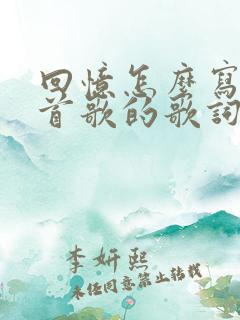 回憶怎麼寫
首歌的歌詞
李妍熙
未經同意禁止轉載